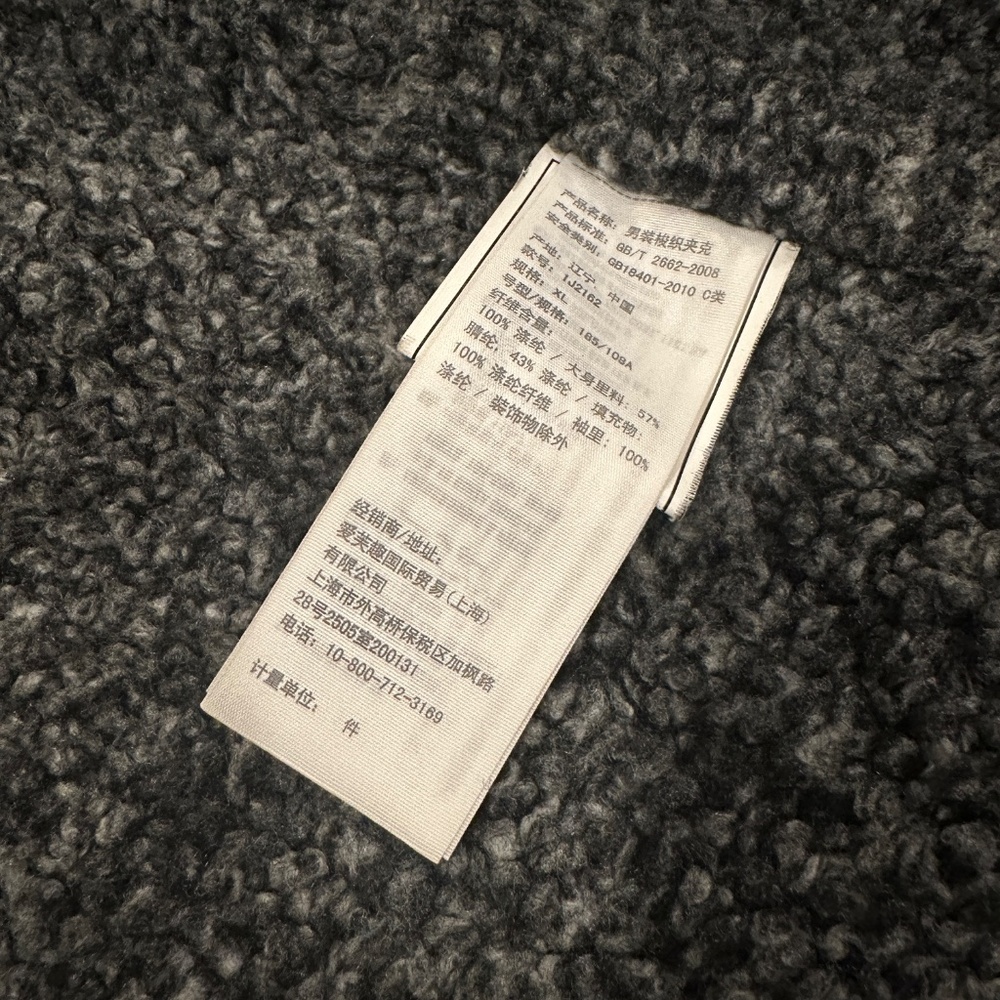 产品名称: 男装梭织夹克
产品标准: GB/T 2662-2008
安全类别: GB18401-2010 C类
产地: 辽宁 中国
款号: IJ2162
规格: XL
号型/规格: 185/108A
纤维含量:
100% 涤纶 / 大身里料: 57%
腈纶, 43% 涤纶 / 填充物:
100% 涤纶纤维 / 袖里: 100%
涤纶 // 装饰物除外
经销商/地址:
爱芙趣国际贸易(上海)
有限公司
上海市外高桥保税区加枫路
28号2505室200131
电话: 10-800-712-3169
计量单位: 件